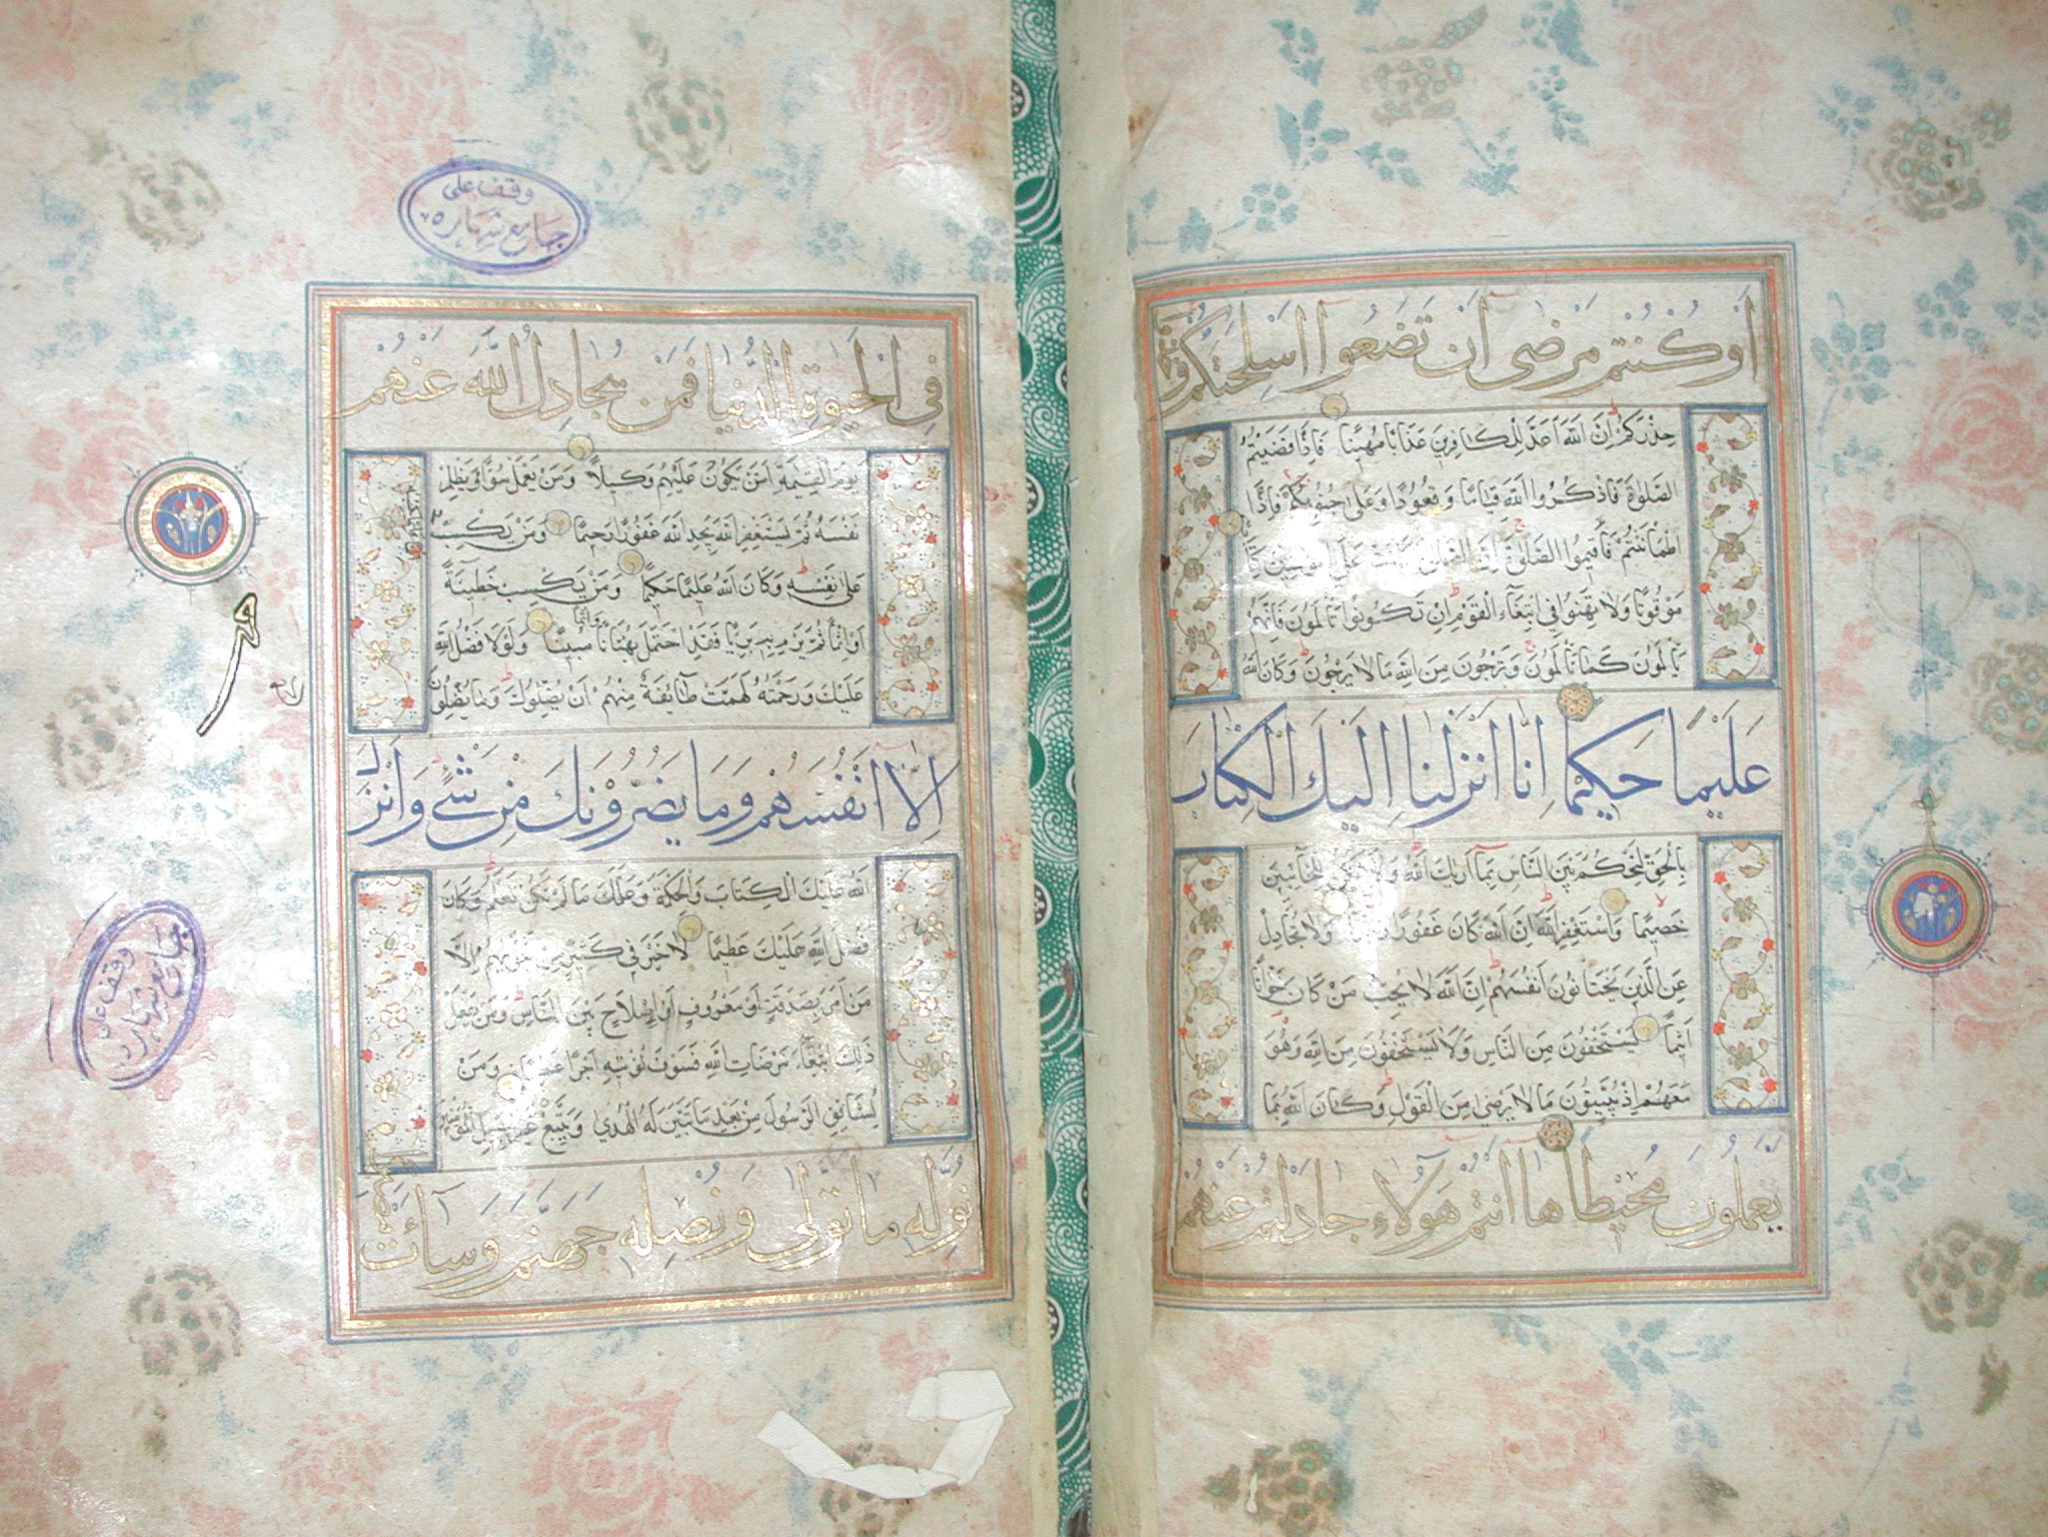 اَوْ كُنْتُمْ مَرْضى اَنْ تَضَعُوا اَسْلِحَتَكُمْ وَخُذُوا
حِذْرَكُمْ اِنَّ اللّٰهَ اَعَدَّ لِلْكَافِرِينَ عَذَابًا مُهِينًا فَاِذَا قَضَيْتُمُ
الصَّلٰوةَ فَاذْكُرُوا اللّٰهَ قِيَامًا وَقُعُودًا وَعَلى جُنُوبِكُمْ فَاِذَا
اطْمَأْنَنْتُمْ فَاَقِيمُوا الصَّلٰوةَ اِنَّ الصَّلٰوةَ كَانَتْ عَلَى الْمُؤْمِنِينَ كِتَابًا
مَوْقُوتًا وَلَا تَهِنُوا فِي ابْتِغَاءِ الْقَوْمِ اِنْ تَكُونُوا تَأْلَمُونَ فَاِنَّهُمْ
يَأْلَمُونَ كَمَا تَأْلَمُونَ وَتَرْجُونَ مِنَ اللّٰهِ مَا لَا يَرْجُونَ وَكَانَ اللّٰهُ
عَلِيمًا حَكِيمًا اِنَّا اَنْزَلْنَا اِلَيْكَ الْكِتَابَ
بِالْحَقِّ لِتَحْكُمَ بَيْنَ النَّاسِ بِمَا اَرٰيكَ اللّٰهُ وَلَا تَكُنْ لِلْخَائِنِينَ
خَصِيمًا وَاسْتَغْفِرِ اللّٰهَ اِنَّ اللّٰهَ كَانَ غَفُورًا رَحِيمًا وَلَا تُجَادِلْ
عَنِ الَّذِينَ يَخْتَانُونَ اَنْفُسَهُمْ اِنَّ اللّٰهَ لَا يُحِبُّ مَنْ كَانَ خَوَّانًا
اَثِيمًا يَسْتَخْفُونَ مِنَ النَّاسِ وَلَا يَسْتَخْفُونَ مِنَ اللّٰهِ وَهُوَ
مَعَهُمْ اِذْ يُبَيِّتُونَ مَا لَا يَرْضى مِنَ الْقَوْلِ وَكَانَ اللّٰهُ بِمَا
يَعْمَلُونَ مُحِيطًا هَا اَنْتُمْ هٰؤُلَاءِ جَادَلْتُمْ عَنْهُمْ
وقف على
جامع شهاره
فِي الْحَيٰوةِ الدُّنْيَا فَمَنْ يُجَادِلُ اللّٰهَ عَنْهُمْ
يَوْمَ الْقِيٰمَةِ اَمَّنْ يَكُونُ عَلَيْهِمْ وَكِيلًا وَمَنْ يَعْمَلْ سُوءًا اَوْ يَظْلِمْ
نَفْسَهُ ثُمَّ يَسْتَغْفِرِ اللّٰهَ يَجِدِ اللّٰهَ غَفُورًا رَحِيمًا وَمَنْ يَكْسِبْ
عَلٰى نَفْسِهِ وَكَانَ اللّٰهُ عَلِيمًا حَكِيمًا وَمَنْ يَكْسِبْ خَطِيئَةً
اَوْ اِثْمًا ثُمَّ يَرْمِ بِهِ بَرِيئًا فَقَدِ احْتَمَلَ بُهْتَانًا وَاِثْمًا مُبِينًا وَلَوْلَا فَضْلُ اللّٰهِ
عَلَيْكَ وَرَحْمَتُهُ لَهَمَّتْ طَائِفَةٌ مِنْهُمْ اَنْ يُضِلُّوكَ وَمَا يُضِلُّونَ
اِلَّا اَنْفُسَهُمْ وَمَا يَضُرُّونَكَ مِنْ شَيْءٍ وَاَنْزَلَ
اللّٰهُ عَلَيْكَ الْكِتَابَ وَالْحِكْمَةَ وَعَلَّمَكَ مَا لَمْ تَكُنْ تَعْلَمُ وَكَانَ
فَضْلُ اللّٰهِ عَلَيْكَ عَظِيمًا لَا خَيْرَ فِي كَثِيرٍ مِنْ نَجْوٰيهُمْ اِلَّا
مَنْ اَمَرَ بِصَدَقَةٍ اَوْ مَعْرُوفٍ اَوْ اِصْلَاحٍ بَيْنَ النَّاسِ وَمَنْ يَفْعَلْ
ذٰلِكَ ابْتِغَاءَ مَرْضَاتِ اللّٰهِ فَسَوْفَ نُؤْتِيهِ اَجْرًا عَظِيمًا وَمَنْ
يُشَاقِقِ الرَّسُولَ مِنْ بَعْدِ مَا تَبَيَّنَ لَهُ الْهُدٰى وَيَتَّبِعْ غَيْرَ سَبِيلِ الْمُؤْمِنِينَ
نُوَلِّهِ مَا تَوَلّٰى وَنُصْلِهِ جَهَنَّمَ وَسَائَتْ
وقف على
جامع شهاره